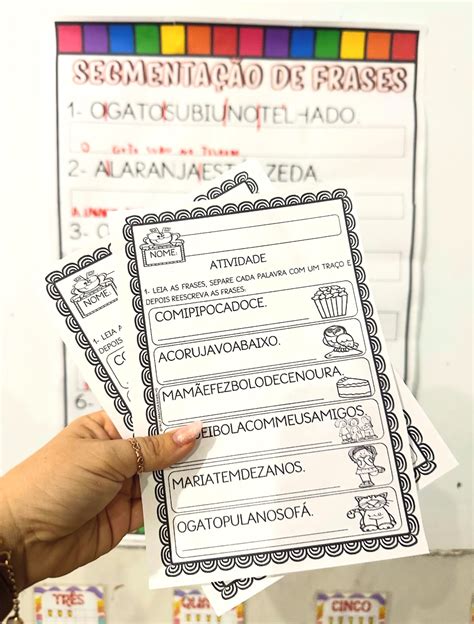 SEGMENTAÇÃO DE FRASES
1- OGATOSUBIUNOTELHADO.
2- ALARANJAESTÁ ZEDA.
3- O
6-
NOME:
ATIVIDADE
1. LEIA AS FRASES, SEPARE CADA PALAVRA COM UM TRAÇO E
DEPOIS REESCREVA AS FRASES.
COMIPIPOCADOCE.
ACORUJAVOABAIXO.
MAMÃEFEZBOLODECENOURA.
EIBOLACOMMEUSAMIGOS.
MARIATEMDEZANOS.
OGATOPULANOSOFÁ.
NOME:
1. LEIA
DEPOIS
TRÊS
CINCO